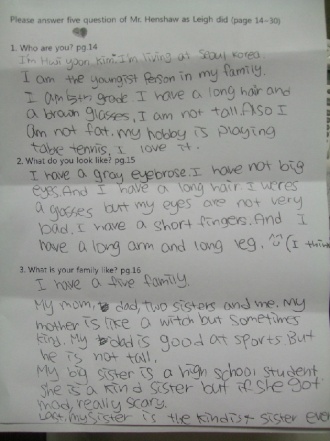 Please answer five question of Mr. Henshaw as Leigh did (page 14~30)
1. Who are you? pg.14
I'm Hwi yoon kim. I'm living at Seoul Korea.
I am the youngist person in my family.
I am 5th grade I have a long hair and
a brown glasses, I am not tall. Also I
am not fat. my hobby is playing
table tennis, I love it.
2. What do you look like? pg.15
I have a gray eyebrose. I have not big
eyes. And I have a long hair. I weres
a glosses but my eyes are not very
bad, I have a short fingers. And I
have a long arm and long leg. (I think
3. What is your family like? pg.16
I have a five family.
My mom, dad, two sisters and me. My
mother is like a witch but sometimes
kind. My dad is good at sports. But
he is not tall.
My big sister is a high school student
she is a kind sister but if she got
mad, really scary.
Last, my sister is the kindist sister ever